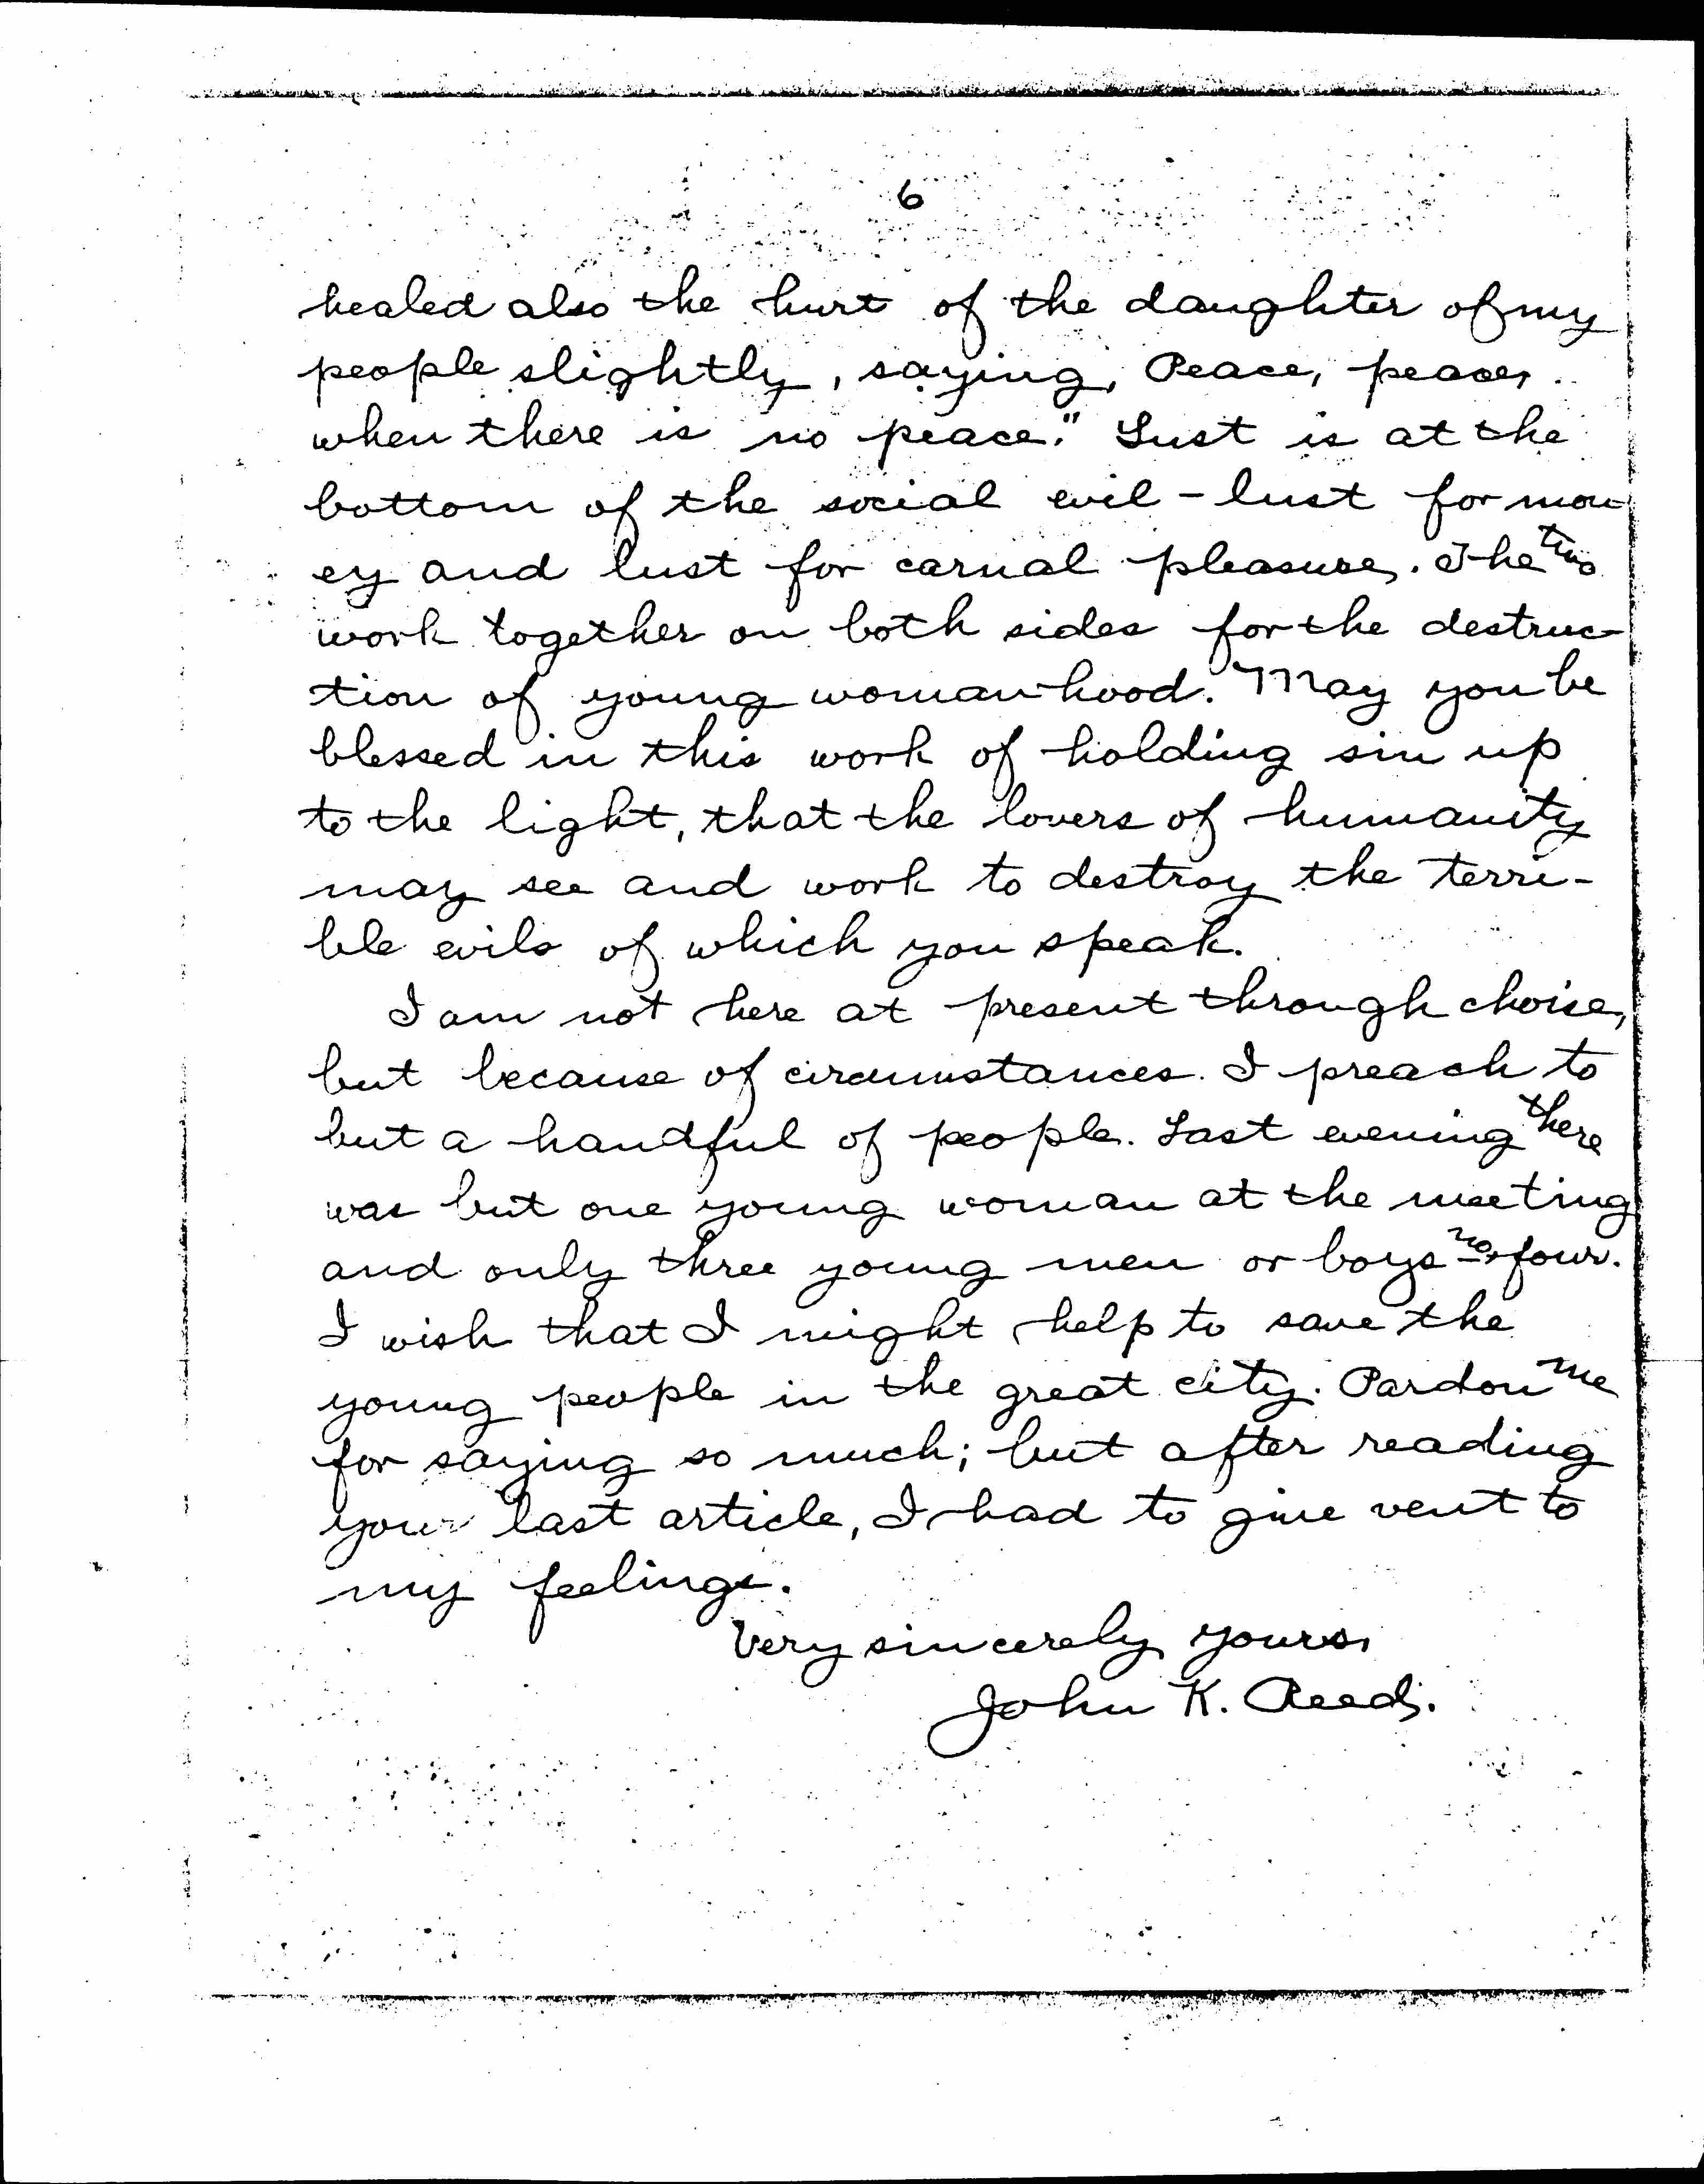 6
healed also the hurt of the daughter of my
people slightly, saying, Peace, peace,
when there is no peace." Lust is at the
bottom of the social evil - lust for mon-
ey and lust for carnal pleasure. The two
work together on both sides for the destruc-
tion of young womanhood. May you be
blessed in this work of holding sin up
to the light, that the lovers of humanity
may see and work to destroy the terri-
ble evils of which you speak.
I am not here at present through choice,
but because of circumstances. I preach to
but a handful of people. Last evening there
was but one young woman at the meeting
and only three young men or boys no, four.
I wish that I might help to save the
young people in the great city. Pardon me
for saying so much; but after reading
your last article, I had to give vent to
my feelings.
Very sincerely yours,
John K. Reed.